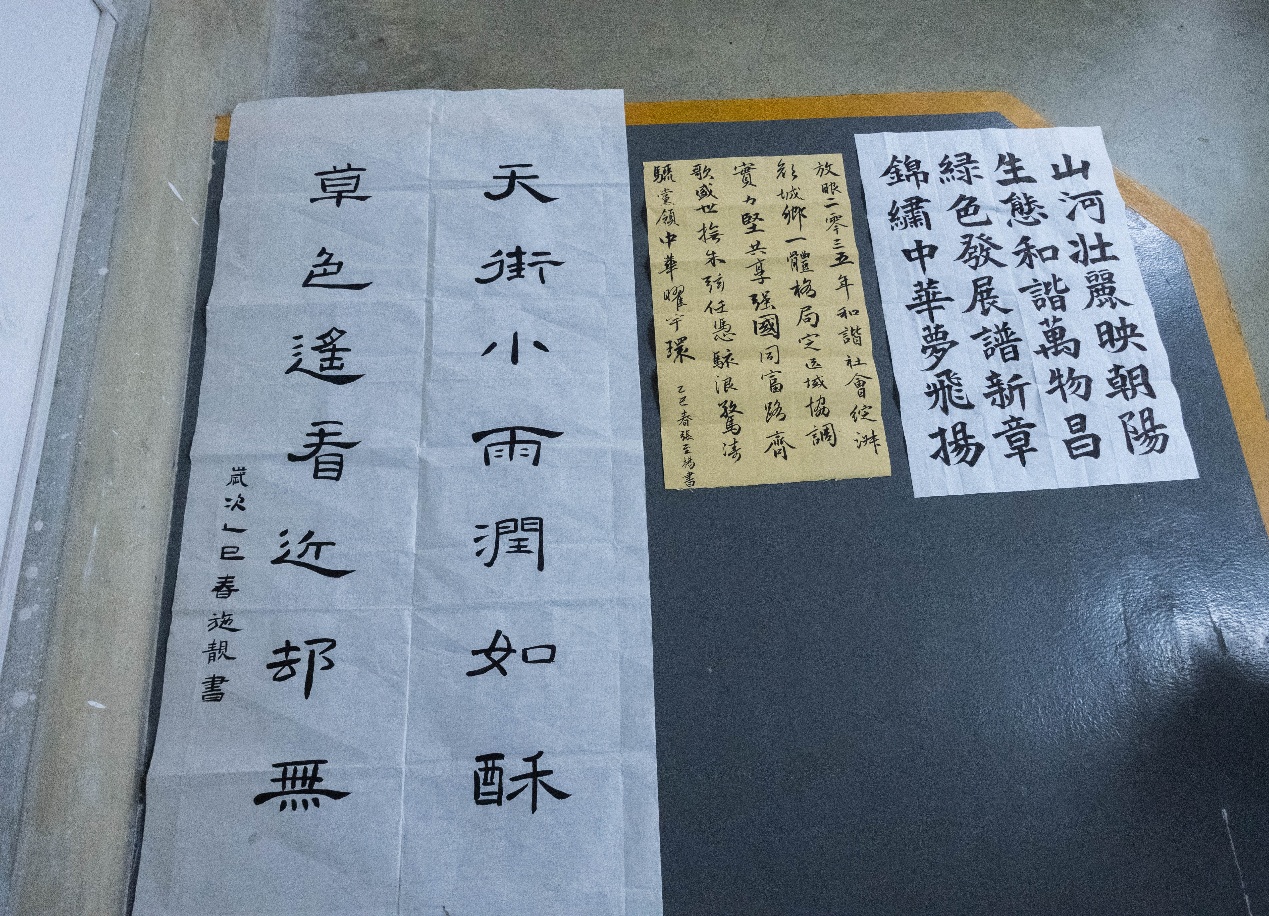 天街小雨潤如酥
草色遙看近却無
歲次乙巳春施靚書
放眼二零三五年和諧社會綻
城鄉一體格局定区域協調
實力堅共享强國同富路齊
歌盛世朱弦任憑駭浪驚濤
黨領中華曜宇環
乙巳春張書
山河壯麗映朝陽
生態和諧萬物昌
緑色發展譜新章
錦繡中華夢飛揚